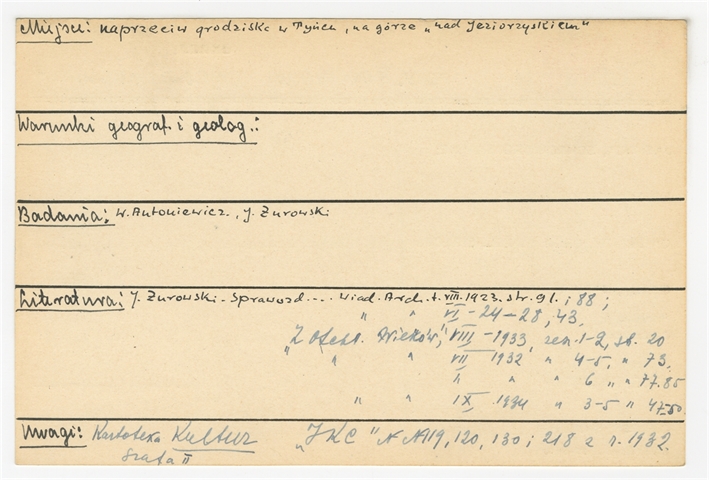 Miejsce: naprzeciw grodziska w Tyńcu, na górze „nad Jeziorzyskiem"
Warunki geograf. i geolog.:
Badania: W. Antoniewicz, J. Żurowski
Literatura: J. Żurowski - Sprawozd.... Wiad. Arch. t. VIII. 1923. str. 91. i 88;
" " VI - 24-28, 43,
„Z otchł. Wieków", VIII - 1933, zesz. 1-2, str. 20
" " VII 1932 " 4-5, " 73,
" " " 6 " " 77.85
" " IX 1934 " 3-5 " 47-50.
Uwagi: Kartoteka Kultur „IKC" N N 119, 120, 130 i 218 z r. 1932.
Szafa II